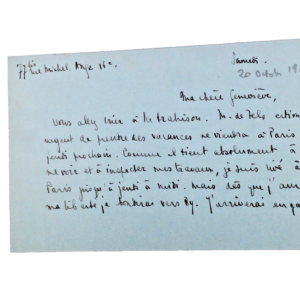 77 bis rue Michel. Ange 16e.
Samedi.
20 Octob 19
Ma chère Geneviève,
Vous allez crier à la trahison. M. de Fels estim
urgent de prendre des vacances ne viendra à Paris
jeudi prochain. Comme il tient absolument à
me voir et à inspecter mes travaux, je suis rivé à
Paris jusqu'à jeudi à midi. Mais dès que j'au
ma liberté je tendrai vers By. J'arriverai en ga